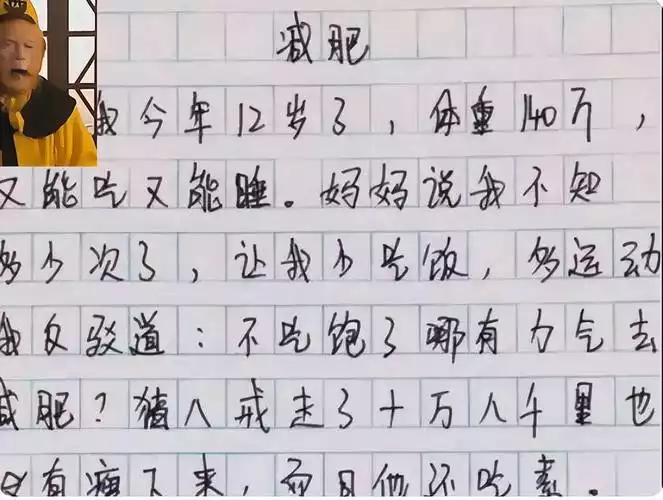 减肥
我今年12岁了，体重140斤，
又能吃又能睡。妈妈说我不知
多少次了，让我少吃饭，多运动
我反驳道：不吃饱了哪有力气去
减肥？猪八戒走了十万八千里也
没有瘦下来，而且他还吃素。